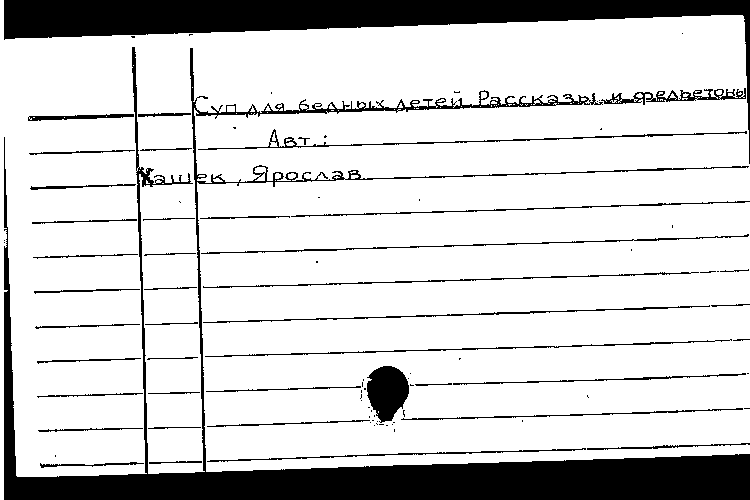 Суп для бедных детей Рассказы и фельетоны
Авт.:
Хашек, Ярослав